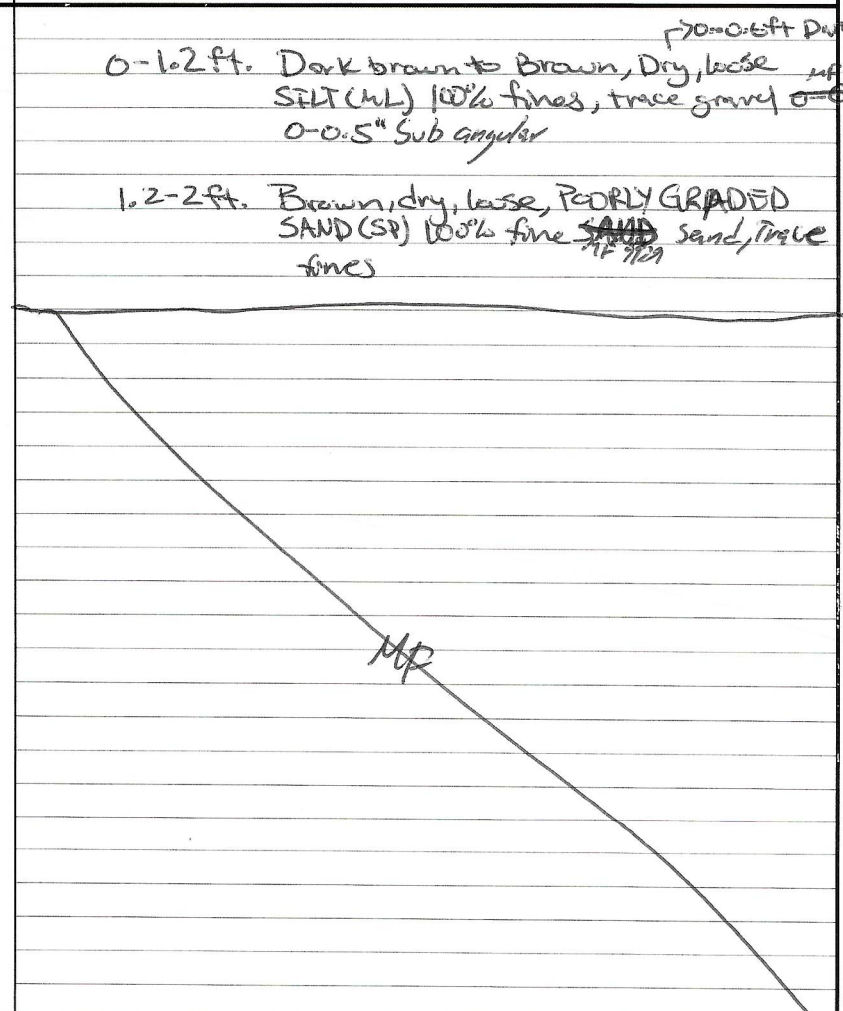 0-0.5ft
0-1.2ft. Dark brown to Brown, Dry, loose
SILT (ML) 100% fines, trace gravel
0-0.5" Sub angular
1.2-2ft. Brown, dry, loose, POORLY GRADED
SAND (SP) 100% fine SAND Sand, Trace
MF
fines
MF